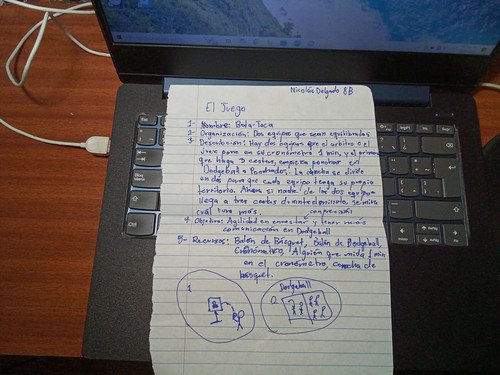 Nicolás Delgado 8B
El Juego
1- Nombre: Bota-Toca
2- Organización: Dos equipos que sean equilibrados
3- Descripción: Hay dos equipos que el arbitro o el
juez pone en su cronómetro 1 min, y el primero
que haga 3 cestas, empieza ponchar en
Dodgeball o Ponchados. La cancha se divide
en dos para que cada equipo tenga su propio
territorio. Ahora si nadie de los dos equipos
llega a tres cestas durante el minuto, se mira
cuál tuvo más.
4. Objetivo: Agilidad en encestar y tener más
comunicación en Dodgeball
5- Recursos: Balón de Básquet, Balón de Dodgeball,
Cronómetro, Alguien que mida 1 min
en el cronometro, cancha de
básquet.
1.
Dodgeball
2.
Ctrl